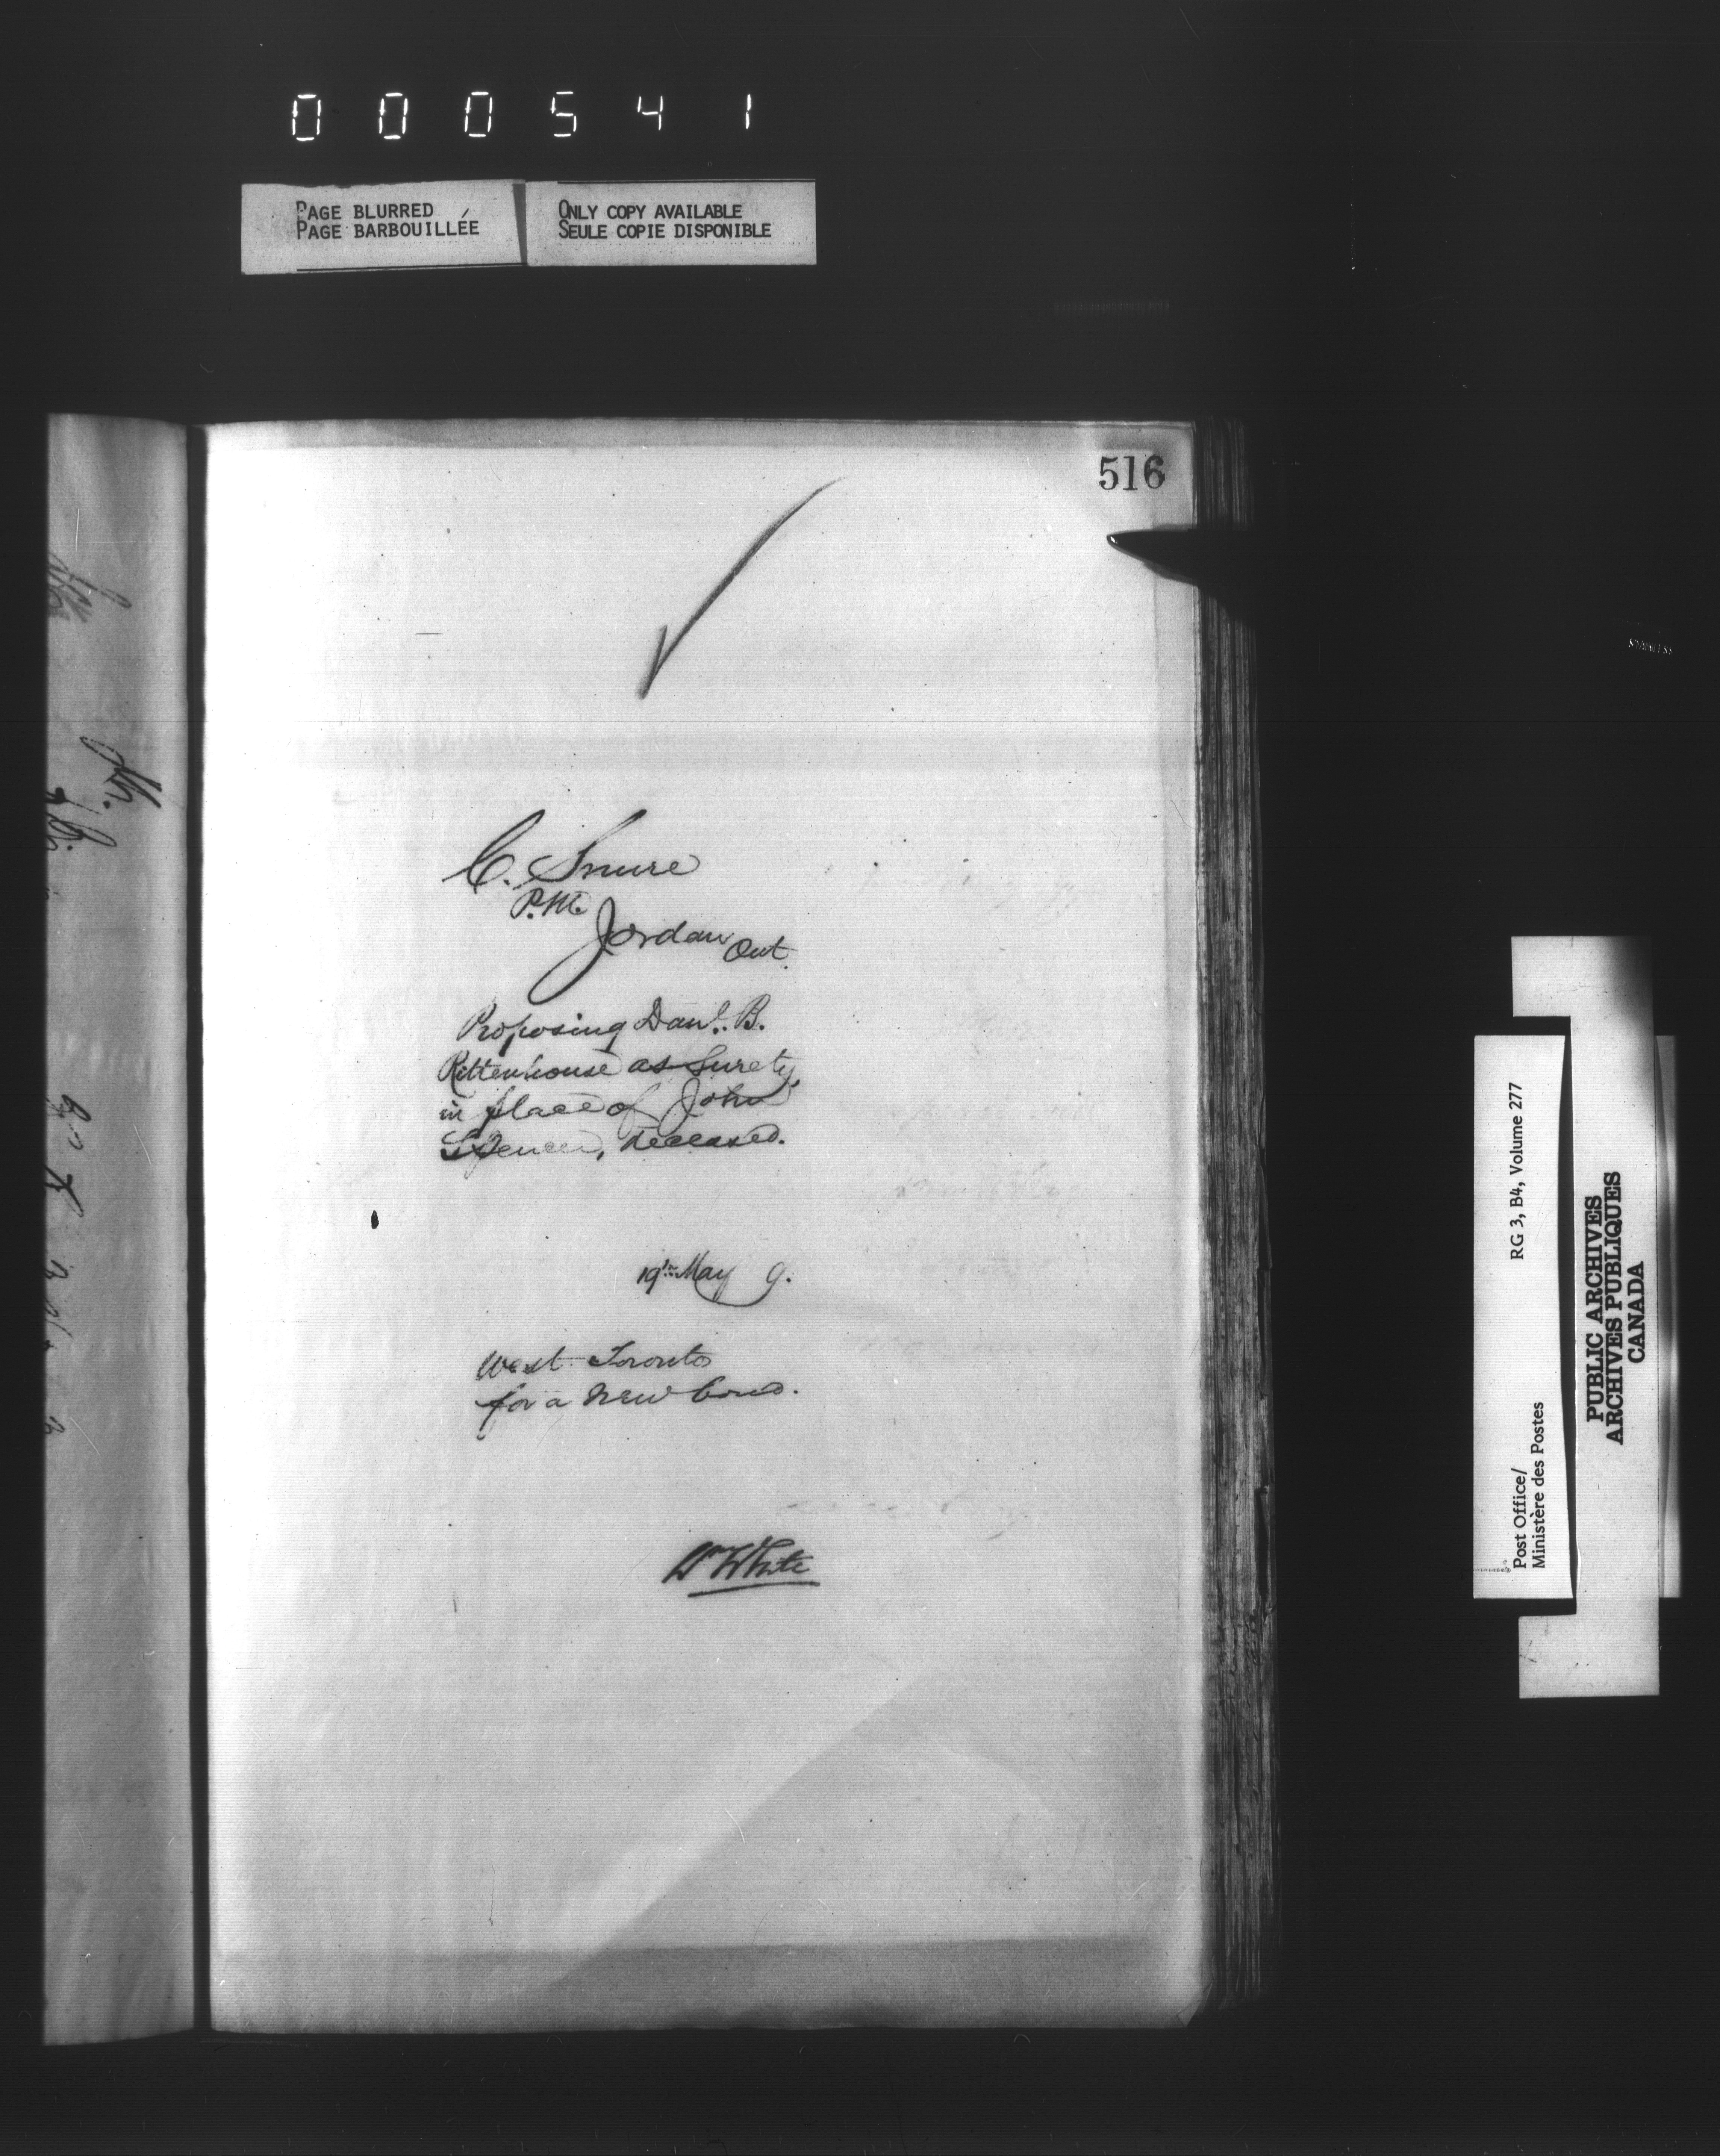 000541
PAGE BLURRED
PAGE BARBOUILLÉE
ONLY COPY AVAILABLE
SEULE COPIE DISPONIBLE
516
C. Snure
P.M.
Jordan Ont.
Proposing Danl. B.
Rittenhouse as Surety,
in place of John
Spencer, deceased.
19th May 9.
West Toronto
for a new bond.
W White
Post Office/
Ministère des Postes
RG 3, B4, Volume 277
PUBLIC ARCHIVES
ARCHIVES PUBLIQUES
CANADA